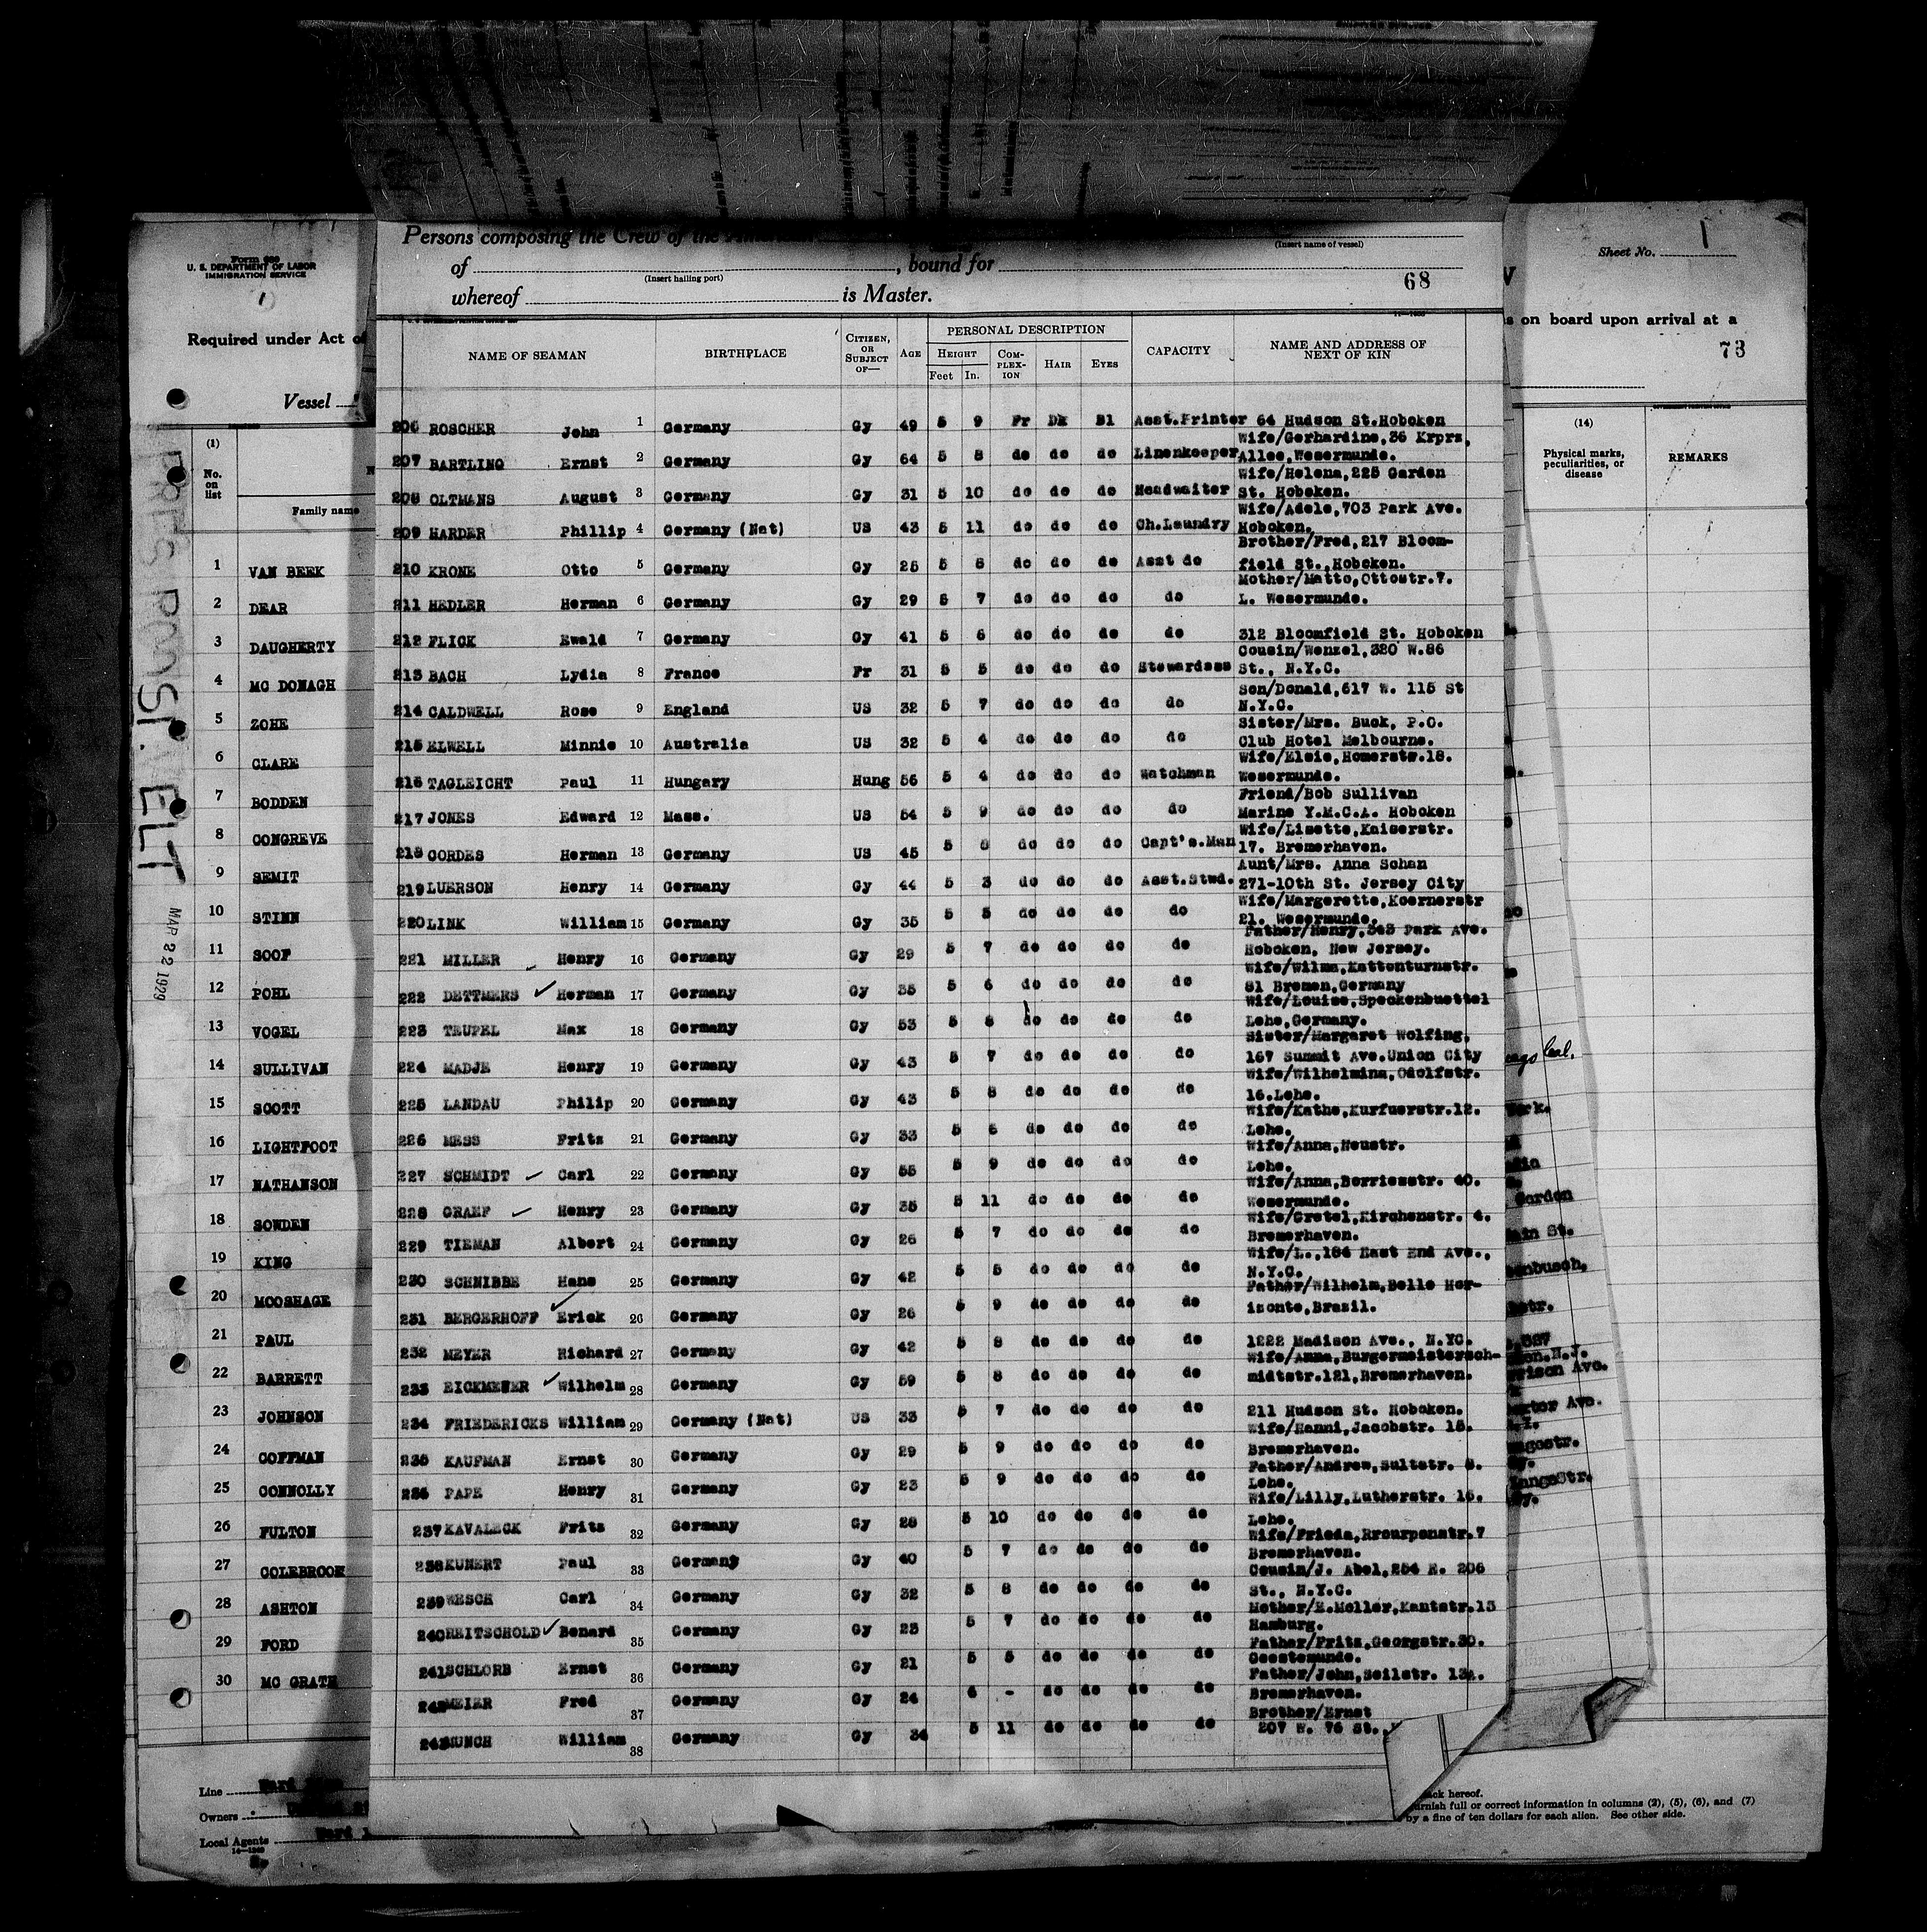 Form 689
U. S. DEPARTMENT OF LABOR
IMMIGRATION SERVICE
1
Required under Act of
Vessel
(1)
No. on list
Family name
1 VAN BEEK
2 DEAR
3 DAUGHERTY
4 MC DONAGH
5 ZOHE
6 CLARE
7 BODDEN
8 CONGREVE
9 SEMIT
10 STINN
11 SOOF
12 POHL
13 VOGEL
14 SULLIVAN
15 SCOTT
16 LIGHTFOOT
17 NATHANSON
18 SOWDEN
19 KING
20 MOOSHAGE
21 PAUL
22 BARRETT
23 JOHNSON
24 COFFMAN
25 CONNOLLY
26 FULTON
27 COLEBROOK
28 ASHTON
29 FORD
30 MC GRATH
Line
Owners
Local Agents
PRES ROOSEVELT
MAR 22 1929
Persons composing the Crew of the American
(Insert name of vessel)
of , bound for
(Insert hailing port)
whereof is Master.
68
NAME OF SEAMAN
BIRTHPLACE
CITIZEN, OR SUBJECT OF—
AGE
PERSONAL DESCRIPTION
HEIGHT
Feet In.
COMPLEXION
HAIR
EYES
CAPACITY
NAME AND ADDRESS OF NEXT OF KIN
206 ROSCHER John 1 Germany Gy 49 5 9 Fr Dk Bl Asst.Printer 64 Hudson St.Hoboken
Wife/Gerhardine,36 Krprz,
207 BARTLING Ernst 2 Germany Gy 64 5 8 do do do Linenkeeper Allee,Wesermunde.
Wife/Helena,225 Garden
208 OLTMANS August 3 Germany Gy 31 5 10 do do do Headwaiter St. Hoboken.
Wife/Adele,703 Park Ave.
209 HARDER Phillip 4 Germany (Nat) US 43 5 11 do do do Ch.Laundry Hoboken.
Brother/Fred,217 Bloom-
210 KRONE Otto 5 Germany Gy 25 5 8 do do do Asst do field St.,Hoboken.
Mother/Matto,Ottostr.7.
211 HEDLER Herman 6 Germany Gy 29 5 7 do do do do L. Wesermunde.
212 FLICK Ewald 7 Germany Gy 41 5 6 do do do do 312 Bloomfield St. Hoboken
Cousin/Wenzel,320 W.86
213 BACH Lydia 8 France Fr 31 5 5 do do do Stewardess St., N.Y.C.
Son/Donald,617 W. 115 St
214 CALDWELL Rose 9 England US 32 5 7 do do do do N.Y.C.
Sister/Mrs. Buck, P.O.
215 ELWELL Minnie 10 Australia US 32 5 4 do do do do Club Hotel Melbourne.
Wife/Elsie,Homerstw.18.
216 TAGLEICHT Paul 11 Hungary Hung 56 5 4 do do do Watchman Wesermunde.
Friend/Bob Sullivan
217 JONES Edward 12 Mass. US 54 5 9 do do do do Marine Y.M.C.A. Hoboken
Wife/Lisette,Kaiserstr.
218 CORDES Herman 13 Germany US 45 5 8 do do do Capt's.Man 17. Bremerhaven.
Aunt/Mrs. Anna Schan
219 LUERSON Henry 14 Germany Gy 44 5 3 do do do Asst.Stwd. 271-10th St. Jersey City
Wife/Margerette,Koernerstr
220 LINK William 15 Germany Gy 35 5 5 do do do do 21. Wesermunde.
Father/Henry,343 Park Ave.
221 MILLER Henry 16 Germany Gy 29 5 7 do do do do Hoboken, New Jersey.
Wife/Wilma,Kattenturnstr.
222 DETTMERS Herman 17 Germany Gy 35 5 6 do do do do 81 Bremen,Germany
Wife/Louise,Speckenbuettel
223 TEUPEL Max 18 Germany Gy 53 5 8 do do do do Lehe,Germany.
Sister/Margaret Wolfing,
224 MADJE Henry 19 Germany Gy 43 5 7 do do do do 167 Summit Ave.Union City
Wife/Wilhelmina,Odolfstr.
225 LANDAU Philip 20 Germany Gy 43 5 8 do do do do 16.Lehe.
Wife/Kathe,Kurfuerstr.12.
226 MESS Fritz 21 Germany Gy 33 5 6 do do do do Lehe.
Wife/Anna,Neustr.
227 SCHMIDT Carl 22 Germany Gy 55 5 9 do do do do Lehe.
Wife/Anna,Borriesstr. 40.
228 GRAEF Henry 23 Germany Gy 35 5 11 do do do do Wesermunde.
Wife/Gretel,Kirchenstr. 4.
229 TIEMAN Albert 24 Germany Gy 26 5 7 do do do do Bremerhaven.
Wife/L.,184 East End Ave.,
230 SCHNIBBE Hans 25 Germany Gy 42 5 5 do do do do N.Y.C.
Father/Wilhelm,Belle Hor-
231 BERGERHOFF Erick 26 Germany Gy 26 5 9 do do do do izonte,Brazil.
232 MEYER Richard 27 Germany Gy 42 5 8 do do do do 1222 Madison Ave., N.YC.
Wife/Anna,Burgermeistersch-
233 EICKMEYER Wilhelm 28 Germany Gy 59 5 8 do do do do midtstr.121,Bremerhaven.
234 FRIEDERICKS William 29 Germany (Nat) US 33 5 7 do do do do 211 Hudson St. Hoboken.
Wife/Hanni,Jacobstr. 15.
235 KAUFMAN Ernst 30 Germany Gy 29 5 9 do do do do Bremerhaven.
Father/Andrew,Sultstr. 8.
236 PAPE Henry 31 Germany Gy 23 5 9 do do do do Lehe.
Wife/Lilly,Lutherstr. 16.
237 KAVALECK Fritz 32 Germany Gy 28 5 10 do do do do Lehe.
Wife/Frieda,
238 KUNERT Paul 33 Germany Gy 40 5 7 do do do do Bremerhaven.
Cousin/J. Abel,254 E. 206
239 WESCH Carl 34 Germany Gy 32 5 8 do do do do St., N.Y.C.
Mother/E.Moller,Kantstr.13
240 REITSCHOLD Benard 35 Germany Gy 23 5 7 do do do do Hamburg.
Father/Fritz,Georgstr.30.
241 SCHLORB Ernst 36 Germany Gy 21 5 5 do do do do Geestemunde.
Father/John,Beilstr. 13.
242 MEIER Fred 37 Germany Gy 24 6 - do do do do Bremerhaven.
Brother/Ernst
243 MUNCH William 38 Germany Gy 34 5 11 do do do do 207 W. 76 St.,
Sheet No. 1
on board upon arrival at a
73
(14)
Physical marks, peculiarities, or disease
REMARKS
Cal.
Garden
ain St.
enbusch,
N.J.
rison Ave.
Ave.
ack hereof.
urnish full or correct information in columns (2), (5), (6), and (7)
by a fine of ten dollars for each alien. See other side.